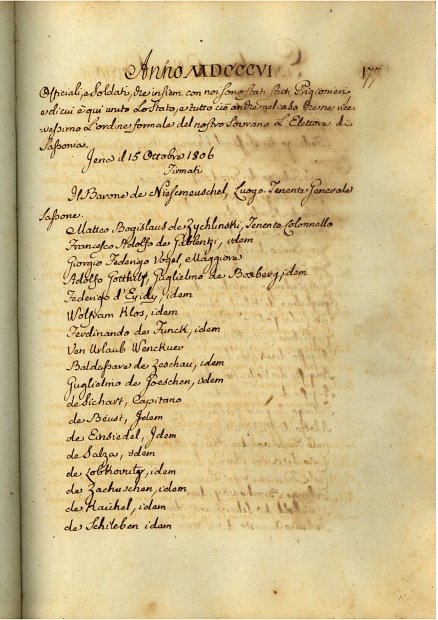 Anno MDCCCVI
177
Officiali, e Soldati, che insiem con noi sono stati fatti Prigionieri
e di cui è qui unito lo Stato, e tutto ciò anche nel caso che ne rice-
vessimo l'ordine formale del nostro Sovrano L'Elettore di
Sassonia.
Jena il 15 Ottobre 1806
Firmati
Il Barone de Niesemeuschel, Luogo Tenente Generale
Sassone.
Matteo Bogislaus de Zychlinski, Tenente Colonnello
Francesco Adolfo de Gablentz, idem
Giorgio Federigo Vogel, Maggiore
Adolfo Gotthelf, Guglielmo de Boxberg, idem
Federigo d'Egidy, idem
Wolfram Klos, idem
Ferdinando de Funck, idem
Ven Urlaub Wenckuer
Baldassare de Zeschau, idem
Guglielmo de Goeschen, idem
de Sichart, Capitano
de Béust, Idem
de Einsiedel, Idem
de Salza, idem
de Lobkovitz, idem
de Zachuschen, idem
de Raichel, idem
de Schileben idem